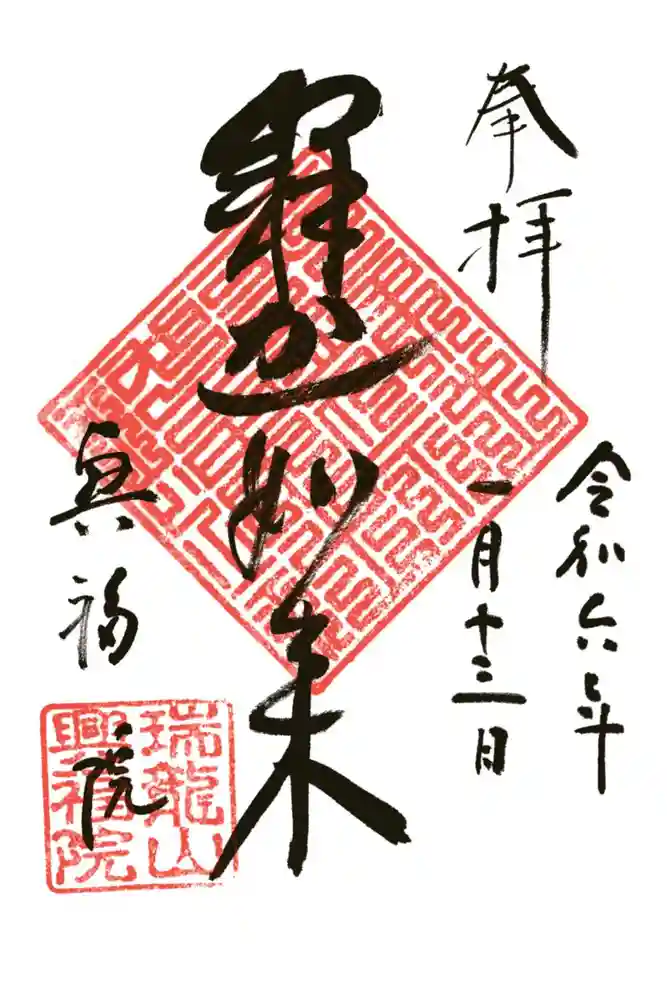 奉拝
令和六年
一月十三日
釋迦如来
興福院
瑞龍山
興福院